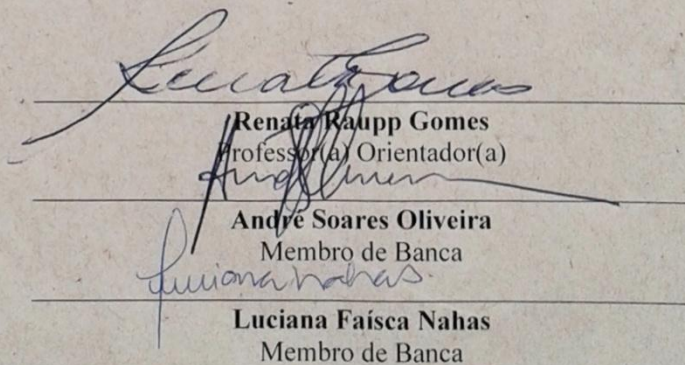 Renata Gomes
Renata Raupp Gomes
Professor(a) Orientador(a)
André Soares Oliveira
Membro de Banca
Luciana Nahas
Luciana Faísca Nahas
Membro de Banca